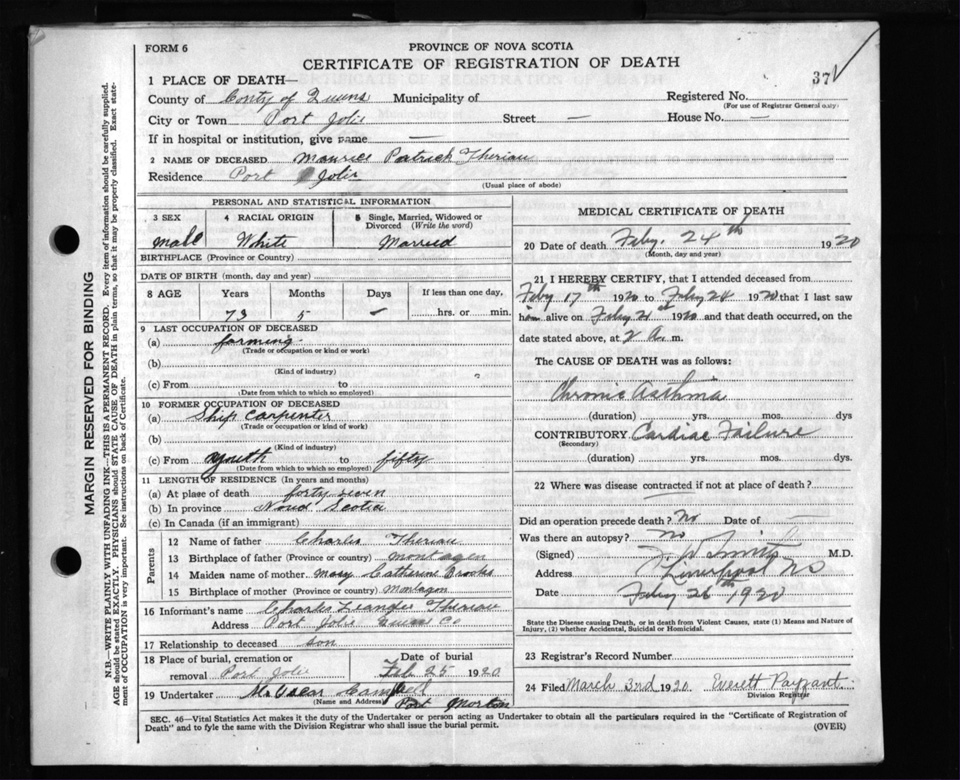 FORM 6
PROVINCE OF NOVA SCOTIA
CERTIFICATE OF REGISTRATION OF DEATH
37
1 PLACE OF DEATH—
County of Conty of Quens Municipality of
Registered No.
(For use of Registrar General only)
City or Town Port Jolie Street — House No. —
If in hospital or institution, give name —
2 NAME OF DECEASED Maurice Patrick Theriau
Residence Port Jolie
(Usual place of abode)
PERSONAL AND STATISTICAL INFORMATION
3 SEX 4 RACIAL ORIGIN 5 Single, Married, Widowed or Divorced (Write the word)
Male White Married
BIRTHPLACE (Province or Country)
DATE OF BIRTH (month, day and year)
8 AGE Years Months Days If less than one day,
73 5 — hrs. or min.
9 LAST OCCUPATION OF DECEASED
(a) farming
(Trade or occupation or kind or work)
(b)
(Kind of industry)
(c) From to
(Date from which to which so employed)
10 FORMER OCCUPATION OF DECEASED
(a) Ship Carpenter
(Trade or occupation or kind of work)
(b)
(Kind of industry)
(c) From youth to fifty
(Date from which to which so employed)
11 LENGTH OF RESIDENCE (In years and months)
(a) At plase of death forty seven
(b) In province Nova Scotia
(c) In Canada (if an immigrant)
Parents
12 Name of father Charles Theriau
13 Birthplace of father (Province or country) Montagen
14 Maiden name of mother. Mary Catherine Brooks
15 Birthplace of mother (Province or country) Montagen
16 Informant's name Charles Leander Theriau
Address Port Jolie Queens Co
17 Relationship to deceased son
18 Place of burial, cremation or removal Port Jolie
Date of burial
Feb 25 1920
19 Undertaker M. Oscar Campbell
(Name and Address) Port Morton
MEDICAL CERTIFICATE OF DEATH
20 Date of death Feby. 24th 1920
(Month, day and year)
21 I HEREBY CERTIFY, that I attended deceased from
Feby 17th 1920 to Feby 24 1920 that I last saw
him alive on Feby 21st 1920 and that death occurred, on the
date stated above, at 2 A. m.
The CAUSE OF DEATH was as follows:
Chronic Asthma
(duration) yrs. mos. dys
CONTRIBUTORY Cardiac Failure
(Secondary)
(duration) yrs. mos. dys.
22 Where was disease contracted if not at place of death?
Did an operation precede death? No Date of —
Was there an autopsy? No
(Signed) J. W. Smith M.D.
Address Liverpool NS
Date Feby 26th 1920
State the Disease causing Death, or in death from Violent Causes, state (1) Means and Nature of
Injury, (2) whether Accidental, Suicidal or Homicidal.
23 Registrar's Record Number
24 Filed March 3rd 1920 Everett Payzant
Division Registrar
SEC. 46—Vital Statistics Act makes it the duty of the Undertaker or person acting as Undertaker to obtain all the particulars required in the "Certificate of Registration of
Death" and to fyle the same with the Division Registrar who shall issue the burial permit.
(OVER)
MARGIN RESERVED FOR BINDING
N.B.—WRITE PLAINLY WITH UNFADING INK—THIS IS A PERMANENT RECORD. Every item of information should be carefully supplied.
AGE should be stated EXACTLY. PHYSICIANS should STATE CAUSE OF DEATH in plain terms, so that it may be properly classified. Exact state-
ment of OCCUPATION is very important. See instructions on back of Certificate.